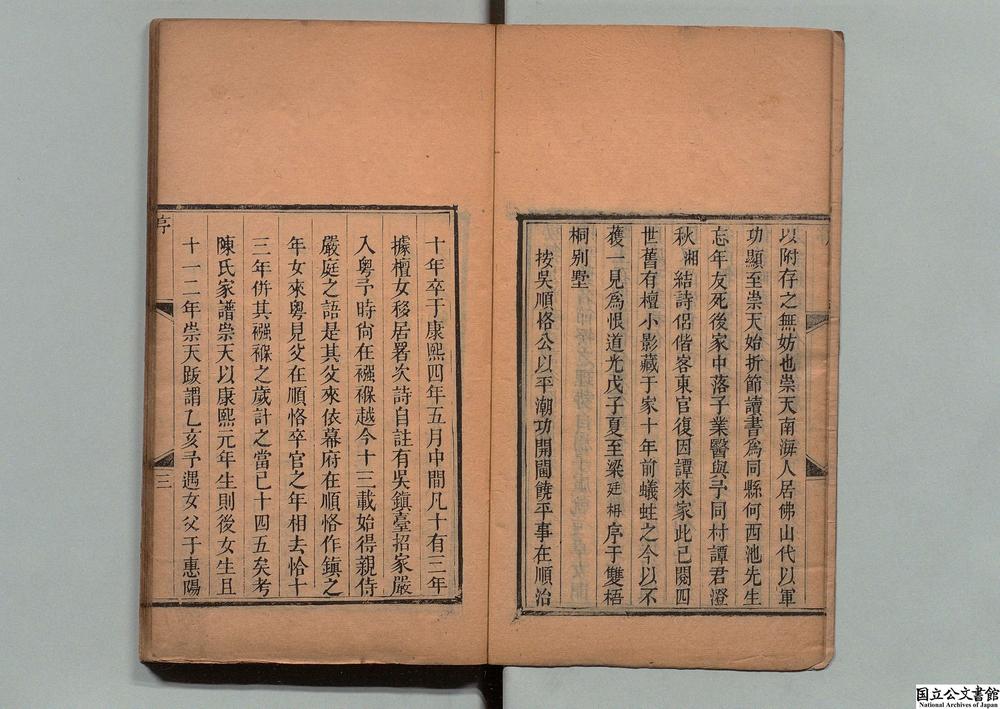 以附存之無妨也崇天南海人居佛山代以軍
功顯至崇天始折節讀書爲同縣何西池先生
忘年友死後家中落子業醫與予同村譚君澄
秋湘結詩侶偕客東官復因譚來家此已閱四
世舊有檀小影藏于家十年前蟻蛀之今以不
獲一見爲恨道光戊子夏至梁廷枏序于雙梧
桐別墅
按吳順恪公以平潮功開閫饒平事在順治
十年卒于康熙四年五月中間凡十有三年
據檀女移居署次詩自註有吳鎮臺招家嚴
入粵予時尙在襁褓越今十三載始得親侍
嚴庭之語是其父來依幕府在順恪作鎮之
年女來粵見父在順恪卒官之年相去恰十
三年併其襁褓之歲計之當已十四五矣考
陳氏家譜崇天以康熙元年生則後女生且
十一二年崇天跋謂乙亥予遇女父于惠陽
序
三
国立公文書館
National Archives of Japan